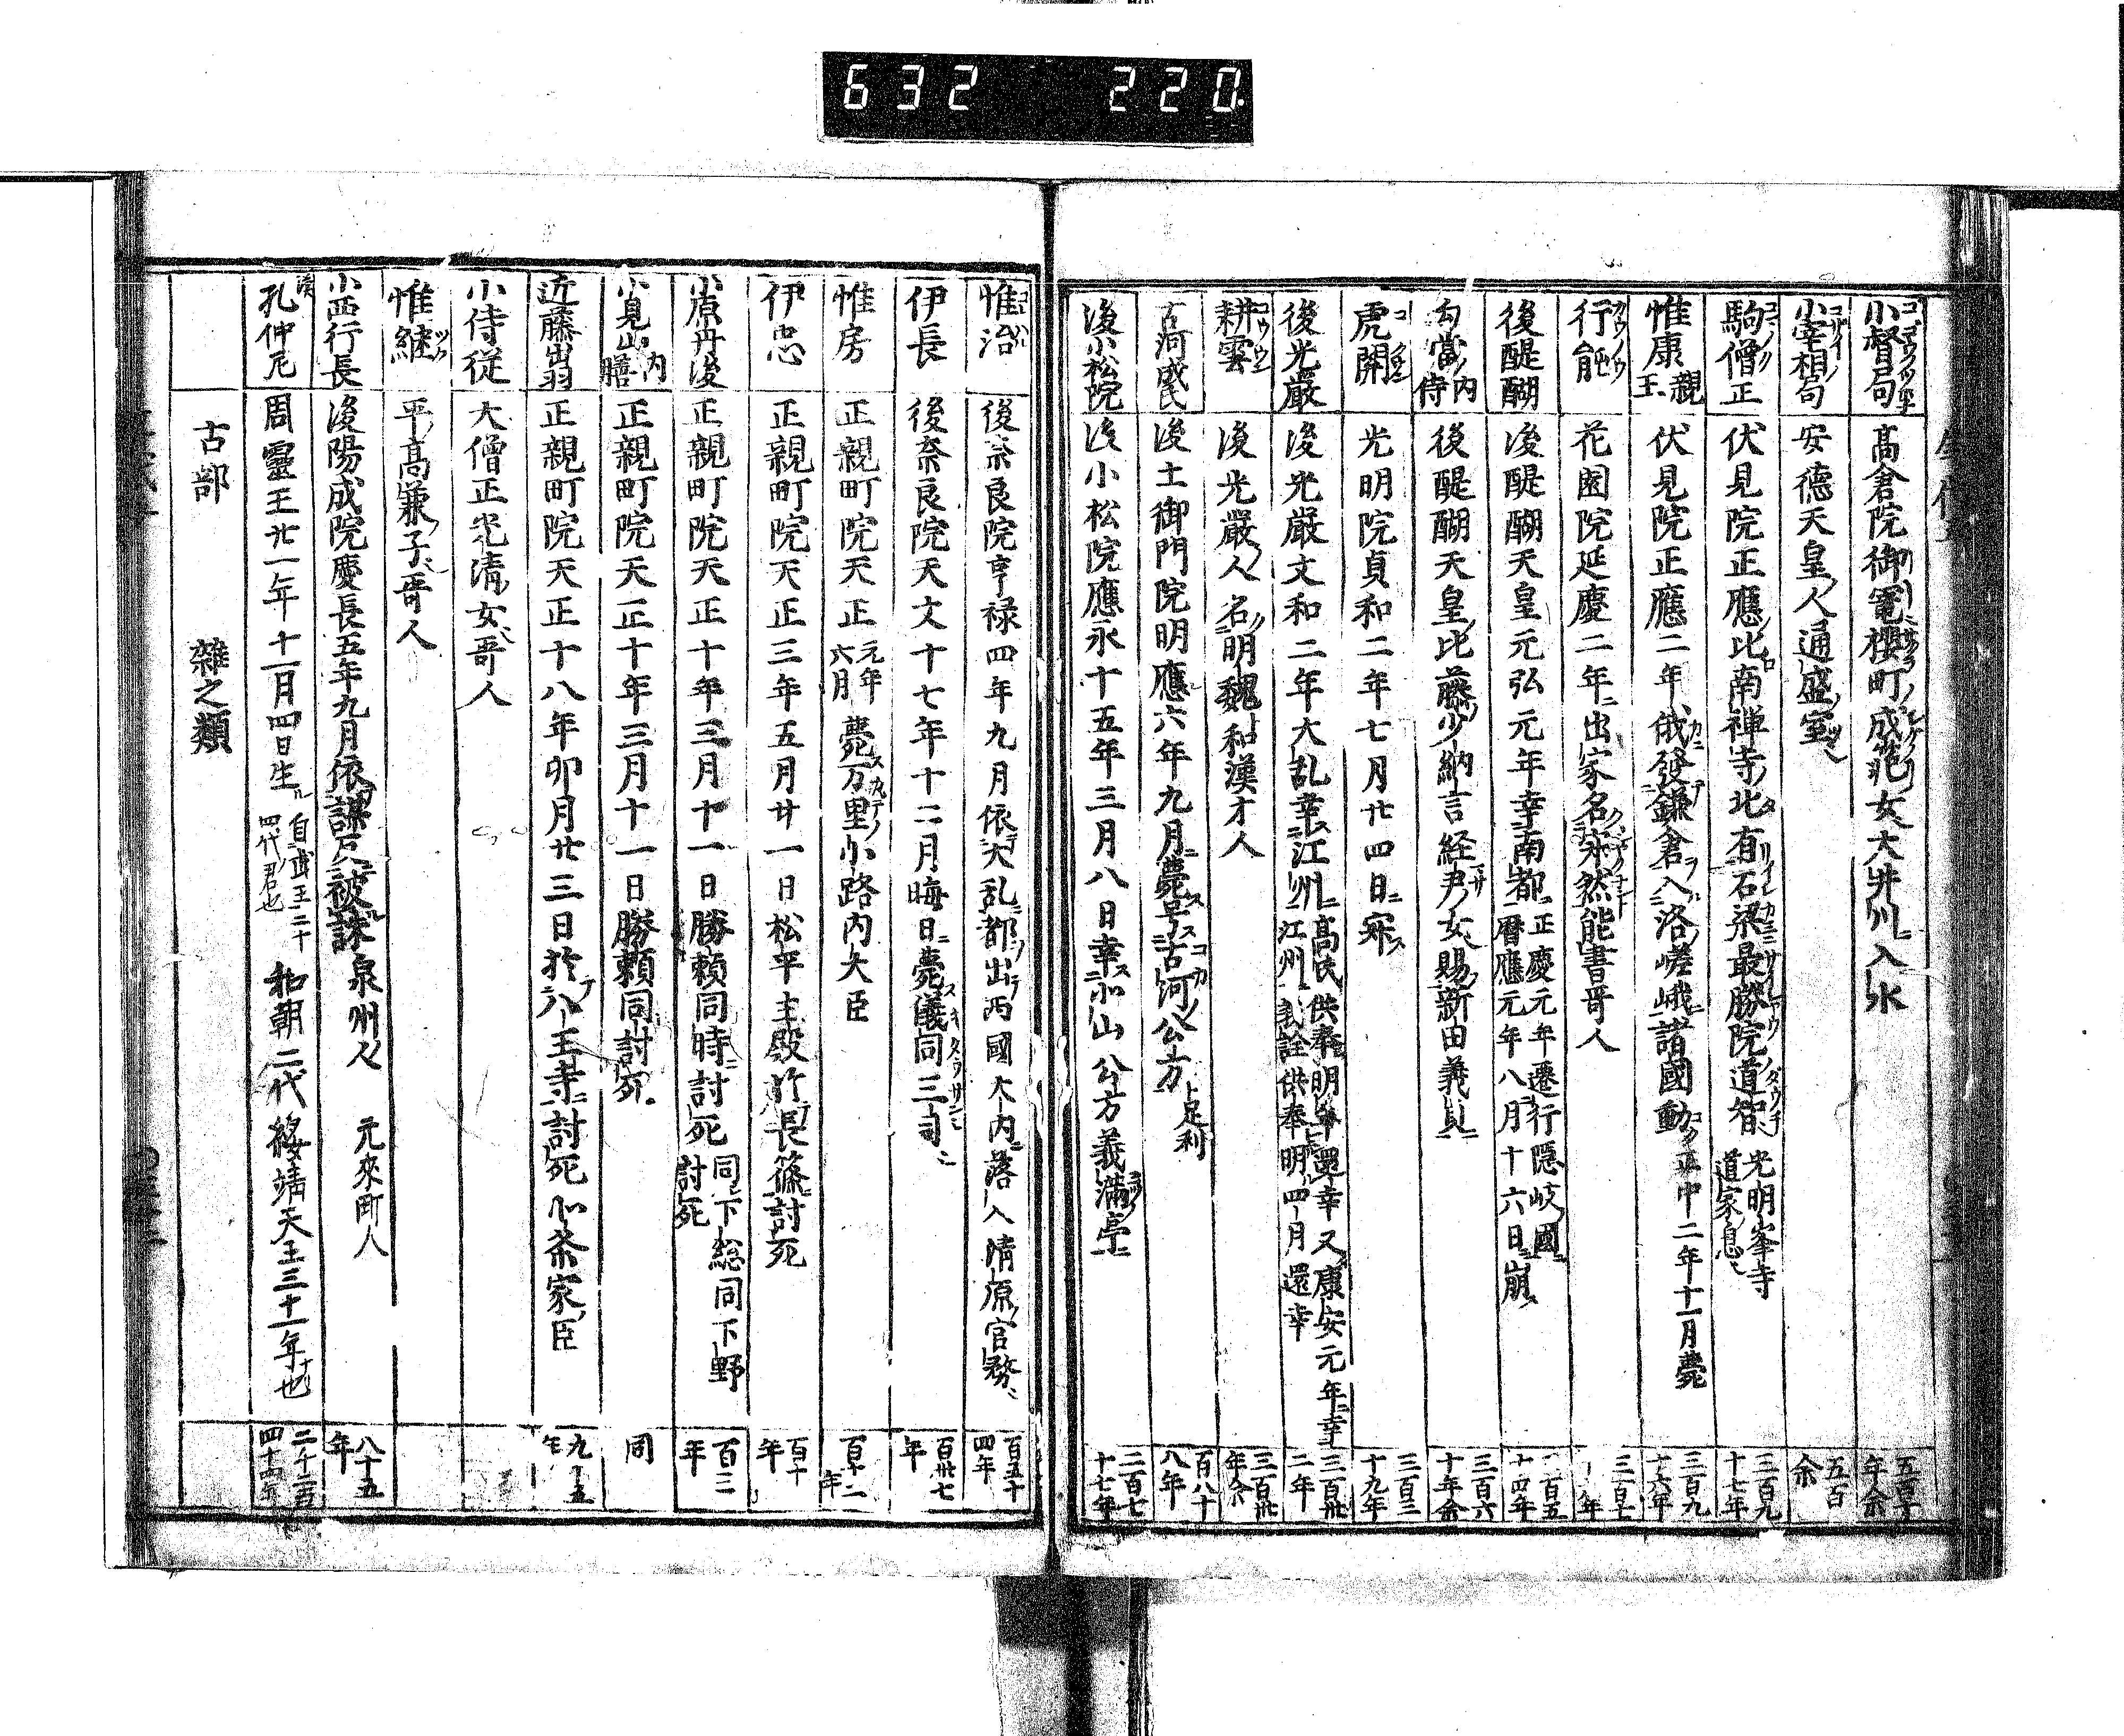 632 220
小督局 高倉院御寵櫻町成範女大井川入水 五百十年余
小宰相局 安德天皇人通盛室 五百余
駒僧正 伏見院正應比南禅寺北有石梁最勝院道智 光明峯寺道家息 三百九十七年
惟康親王 伏見院正應二年俄發鎌倉入洛嵯峨諸國動 正中二年十一月薨 三百九十六年
行能 花園院延慶二年出家名寂然能書哥人
後醍醐 後醍醐天皇元弘元年幸南都 正慶元年遷行隠岐國 暦應元年八月十六日崩
勾當内侍 後醍醐天皇比藤少納言経尹女賜新田義貞 三百六十年余
虎関 光明院貞和二年七月廿四日寂 三百三十九年
後光嚴 後光嚴文和二年大乱幸江州 高氏供奉明年還幸又康安元年幸江州義詮供奉明四月還幸 三百卅二年
耕雲 後光嚴人名明魏和漢才人 三百卅年余
古河成氏 後土御門院明應六年九月薨号古河公方 足利 百八十八年
後小松院 後小松院應永十五年三月八日幸北山公方義満亭 二百七十七年
惟治 後奈良院亨禄四年九月依大乱都出西國大内落入清原官務 百五十四年
伊長 後奈良院天文十七年十二月晦日薨儀同三司 百卅七年
惟房 正親町院天正元年六月薨万里小路内大臣 百十二年
伊忠 正親町院天正三年五月廿一日松平主殿於長篠討死 百十年
小原丹後 正親町院天正十年三月十一日勝頼同時討死 同下総同下野討死 百三年
小見山内膳 正親町院天正十年三月十一日勝頼同討死 同
近藤出羽 正親町院天正十八年卯月廿三日於八王寺討死北条家臣 九十五年
小侍従 大僧正光清女哥人
惟継 平高兼子哥人
小西行長 後陽成院慶長五年九月依謀反被誅泉州人 元來町人 八十五年
孔仲尼 周靈王廿一年十一月四日生 自武王二十四代君也 和朝二代綏靖天王三十一年也
古部 雑之類